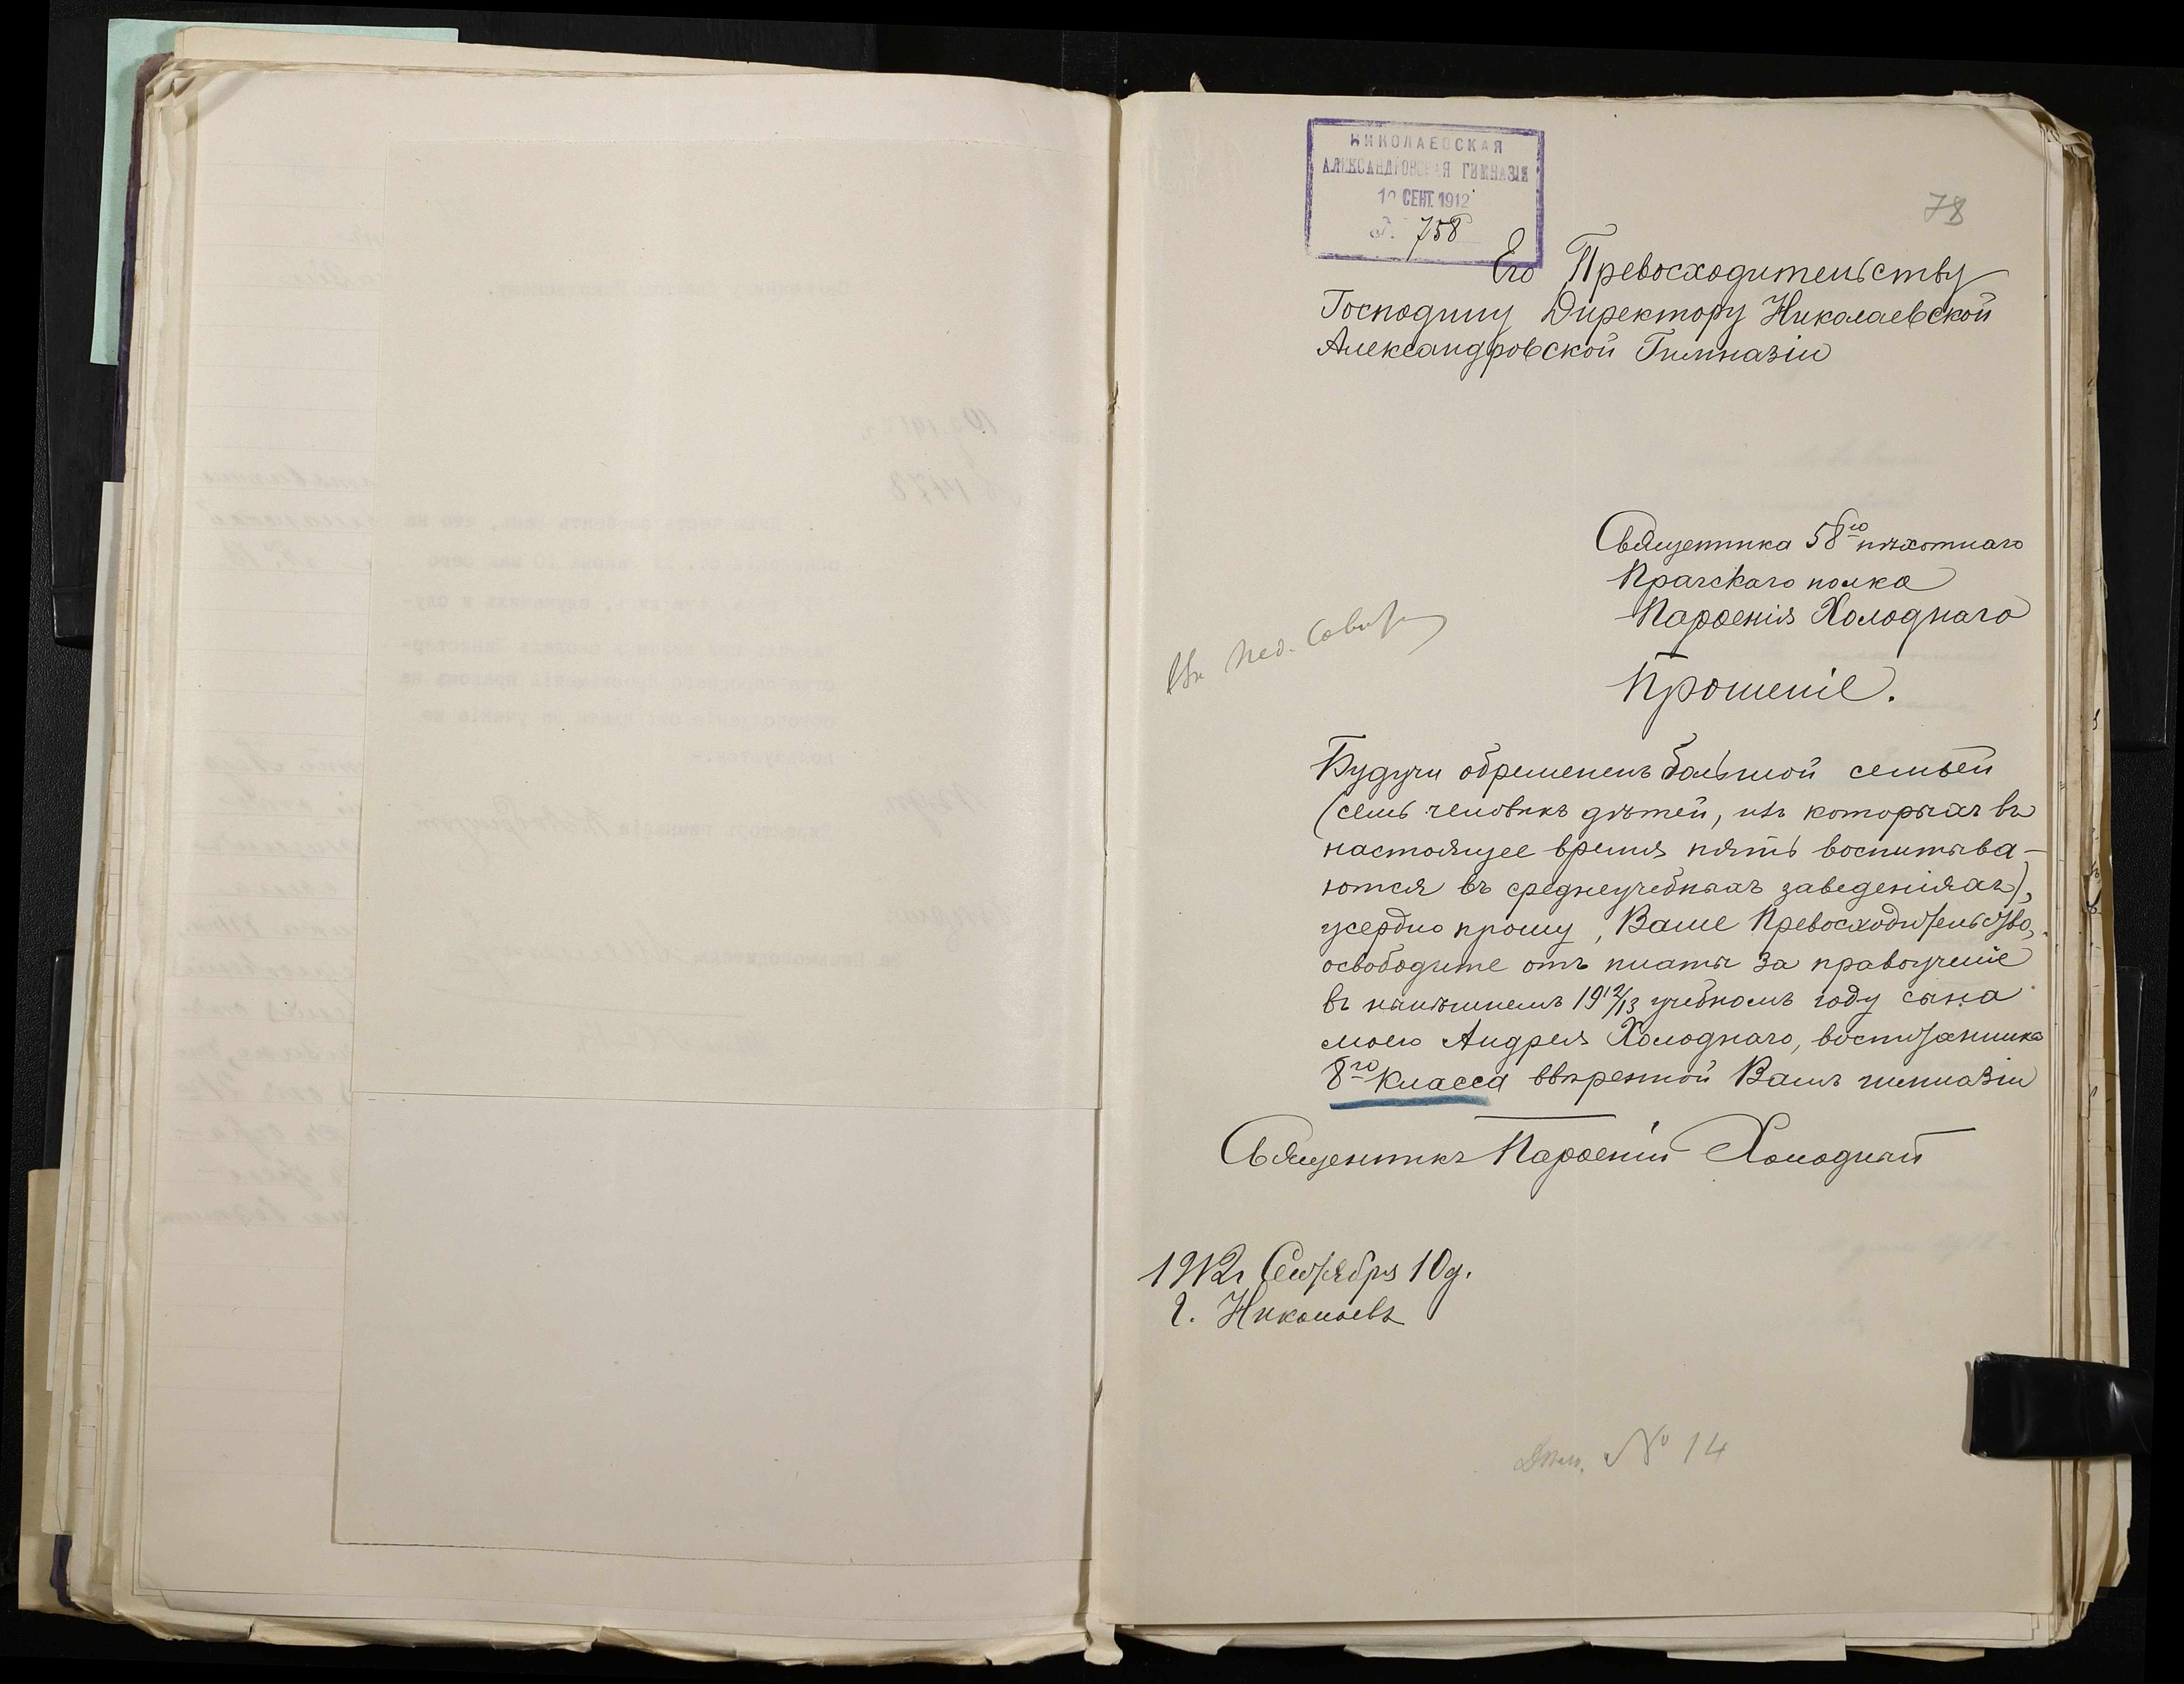 НИКОЛАЕВСКАЯ
АЛЕКСАНДРОВСКАЯ ГИМНАЗІЯ
СЕНТ. 1912
758
78
Его Превосходительству
Господину Директору Николаевской
Александровской Гимназіи
Священника 58го пѣхотнаго
Прагскаго полка
Парѳенія Холоднаго
Въ Пед. Совѣтъ
Прошеніе.
Будучи обремененъ большой семьей
(семь человѣкъ дѣтей, изъ которыхъ въ
настоящее время пять воспитыва-
ются въ среднеучебныхъ заведеніяхъ),
усердно прошу, Ваше Превосходительство,
освободите отъ платы за правоученіе
въ нынѣшнемъ 1912/13 учебномъ году сына
моего Андрея Холоднаго, воспитанника
8го класса ввѣренной Вамъ гимназіи
Священникъ Парѳеній Холодный
1912г Сентября 10д.
г. Николаевъ
№ 14